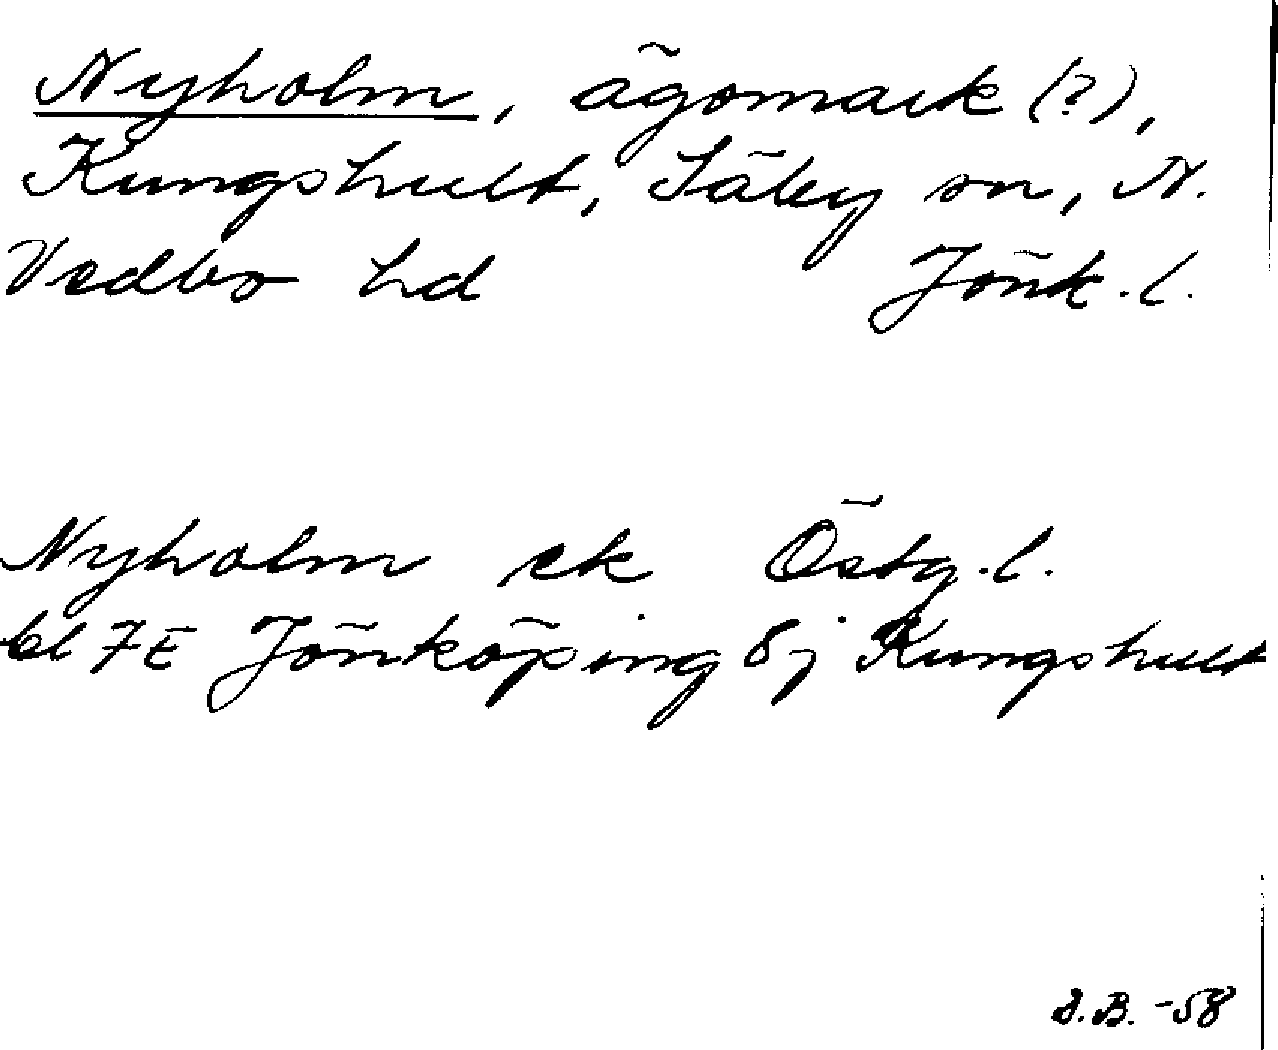 Nyholm, ägomark (?),
Kungshult, Säby sn, N.
Vedbo hd Jönk.l.
Nyholm ek Östg.l.
bl 7E Jönköping 8j Kungshult
B. -58